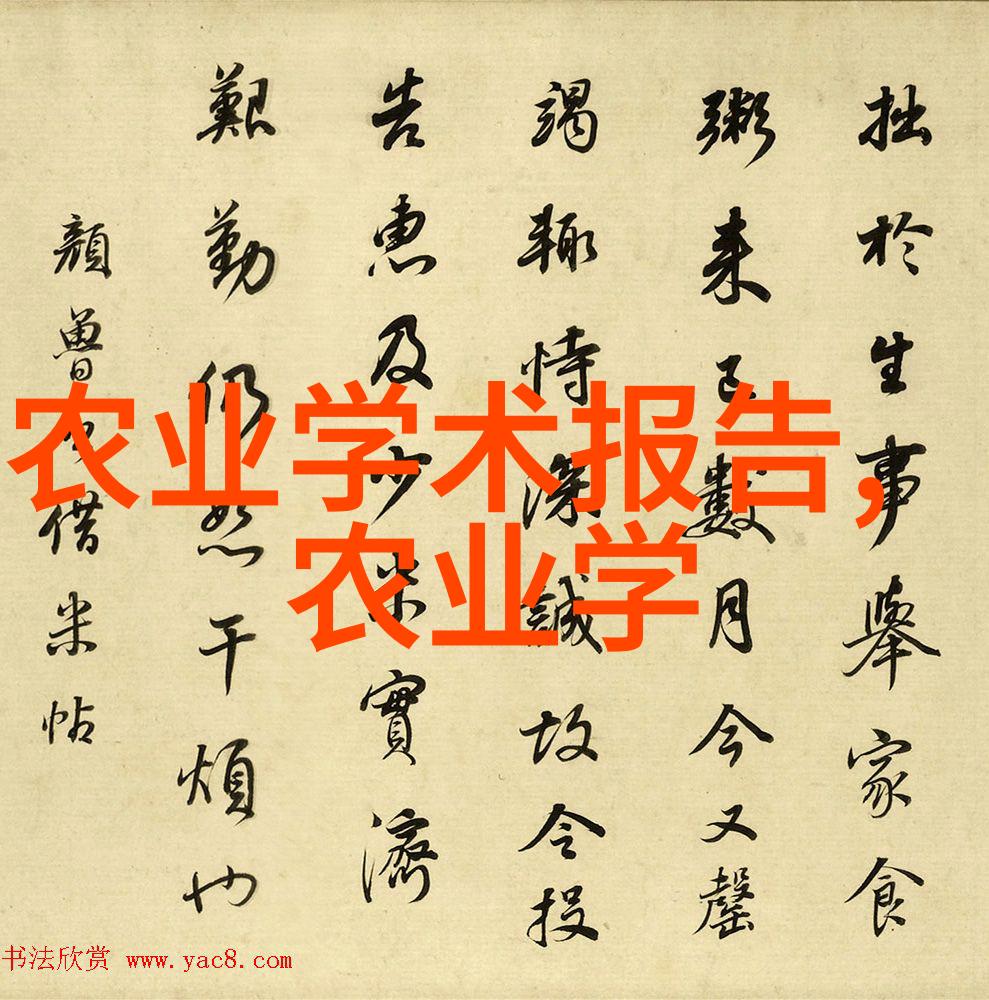 拙於生事舉家食
粥来已數月今又罄
竭輙恃深誠故令投
告惠及少米實濟
艱勤仍恕干煩也
顔魯公借米帖
农业学术报告,
农业学
书法欣赏 www.yac8.com